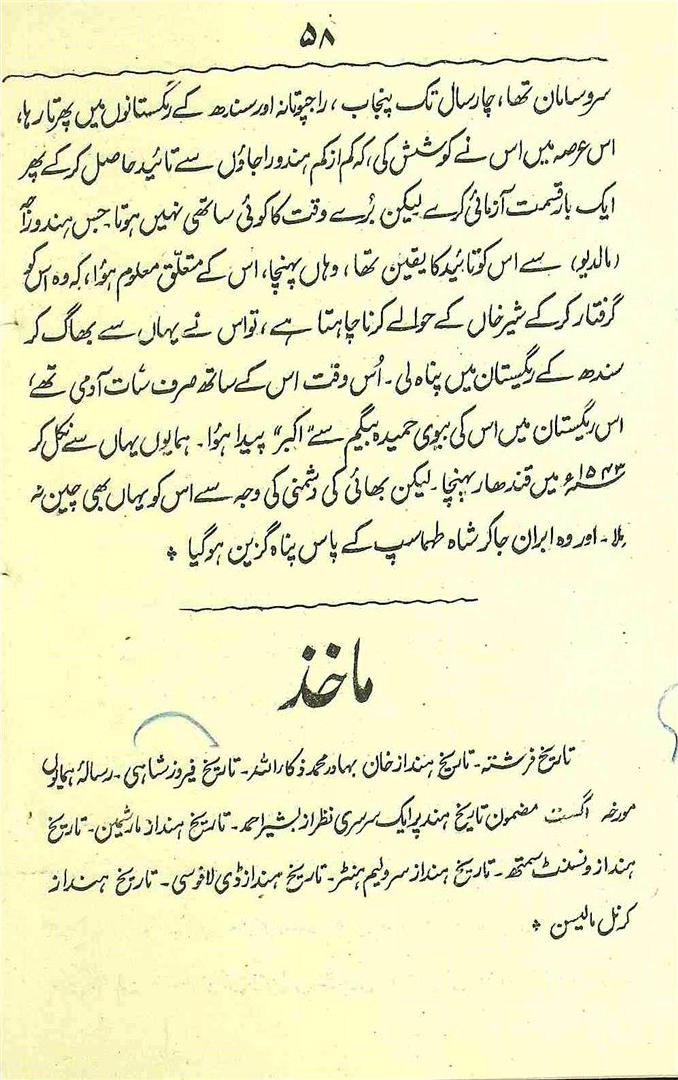 ۵۸
سروسامان تھا، چار سال تک پنجاب، راجپوتانہ اور سندھ کے ریگستانوں میں پھرتا رہا،
اس عرصہ میں اس نے کوشش کی، کہ کم از کم ہندو راجاؤں سے تائید حاصل کر کے پھر
ایک بار قسمت آزمائی کرے لیکن بُرے وقت کا کوئی ساتھی نہیں ہوتا جس ہندو راجہ
(مالدیو) سے اس کو تائید کا یقین تھا، وہاں پہنچا، اس کے متعلّق معلوم ہؤا، کہ وہ اس کو
گرفتار کر کے شیر خاں کے حوالے کرنا چاہتا ہے، تو اس نے یہاں سے بھاگ کر
سندھ کے ریگستان میں پناہ لی۔ اُس وقت اس کے ساتھ صرف سات آدمی تھے،
اس ریگستان میں اس کی بیوی حمیدہ بیگم سے "اکبر" پیدا ہؤا۔ ہمایوں یہاں سے نکل کر
۱۵۴۳ء میں قندھار پہنچا۔ لیکن بھائی کی دشمنی کی وجہ سے اس کو یہاں بھی چین نہ
ملا۔ اور وہ ایران جا کر شاہ طہماسپ کے پاس پناہ گزین ہو گیا ٭
ماخذ
تاریخ فرشتہ۔ تاریخ ہند از خان بہادر محمد ذکاراللہ۔ تاریخ فیروز شاہی۔ رسالۂ ہمایوں
مورخہ اگست مضمون تاریخ ہند پر ایک سرسری نظر از بشیر احمد۔ تاریخ ہند از مارشمین۔ تاریخ
ہند از ونسنٹ سمتھ۔ تاریخ ہند از سر ولیم ہنٹر۔ تاریخ ہند از ڈی لافوسی۔ تاریخ ہند از
کرنل مالیسن ٭